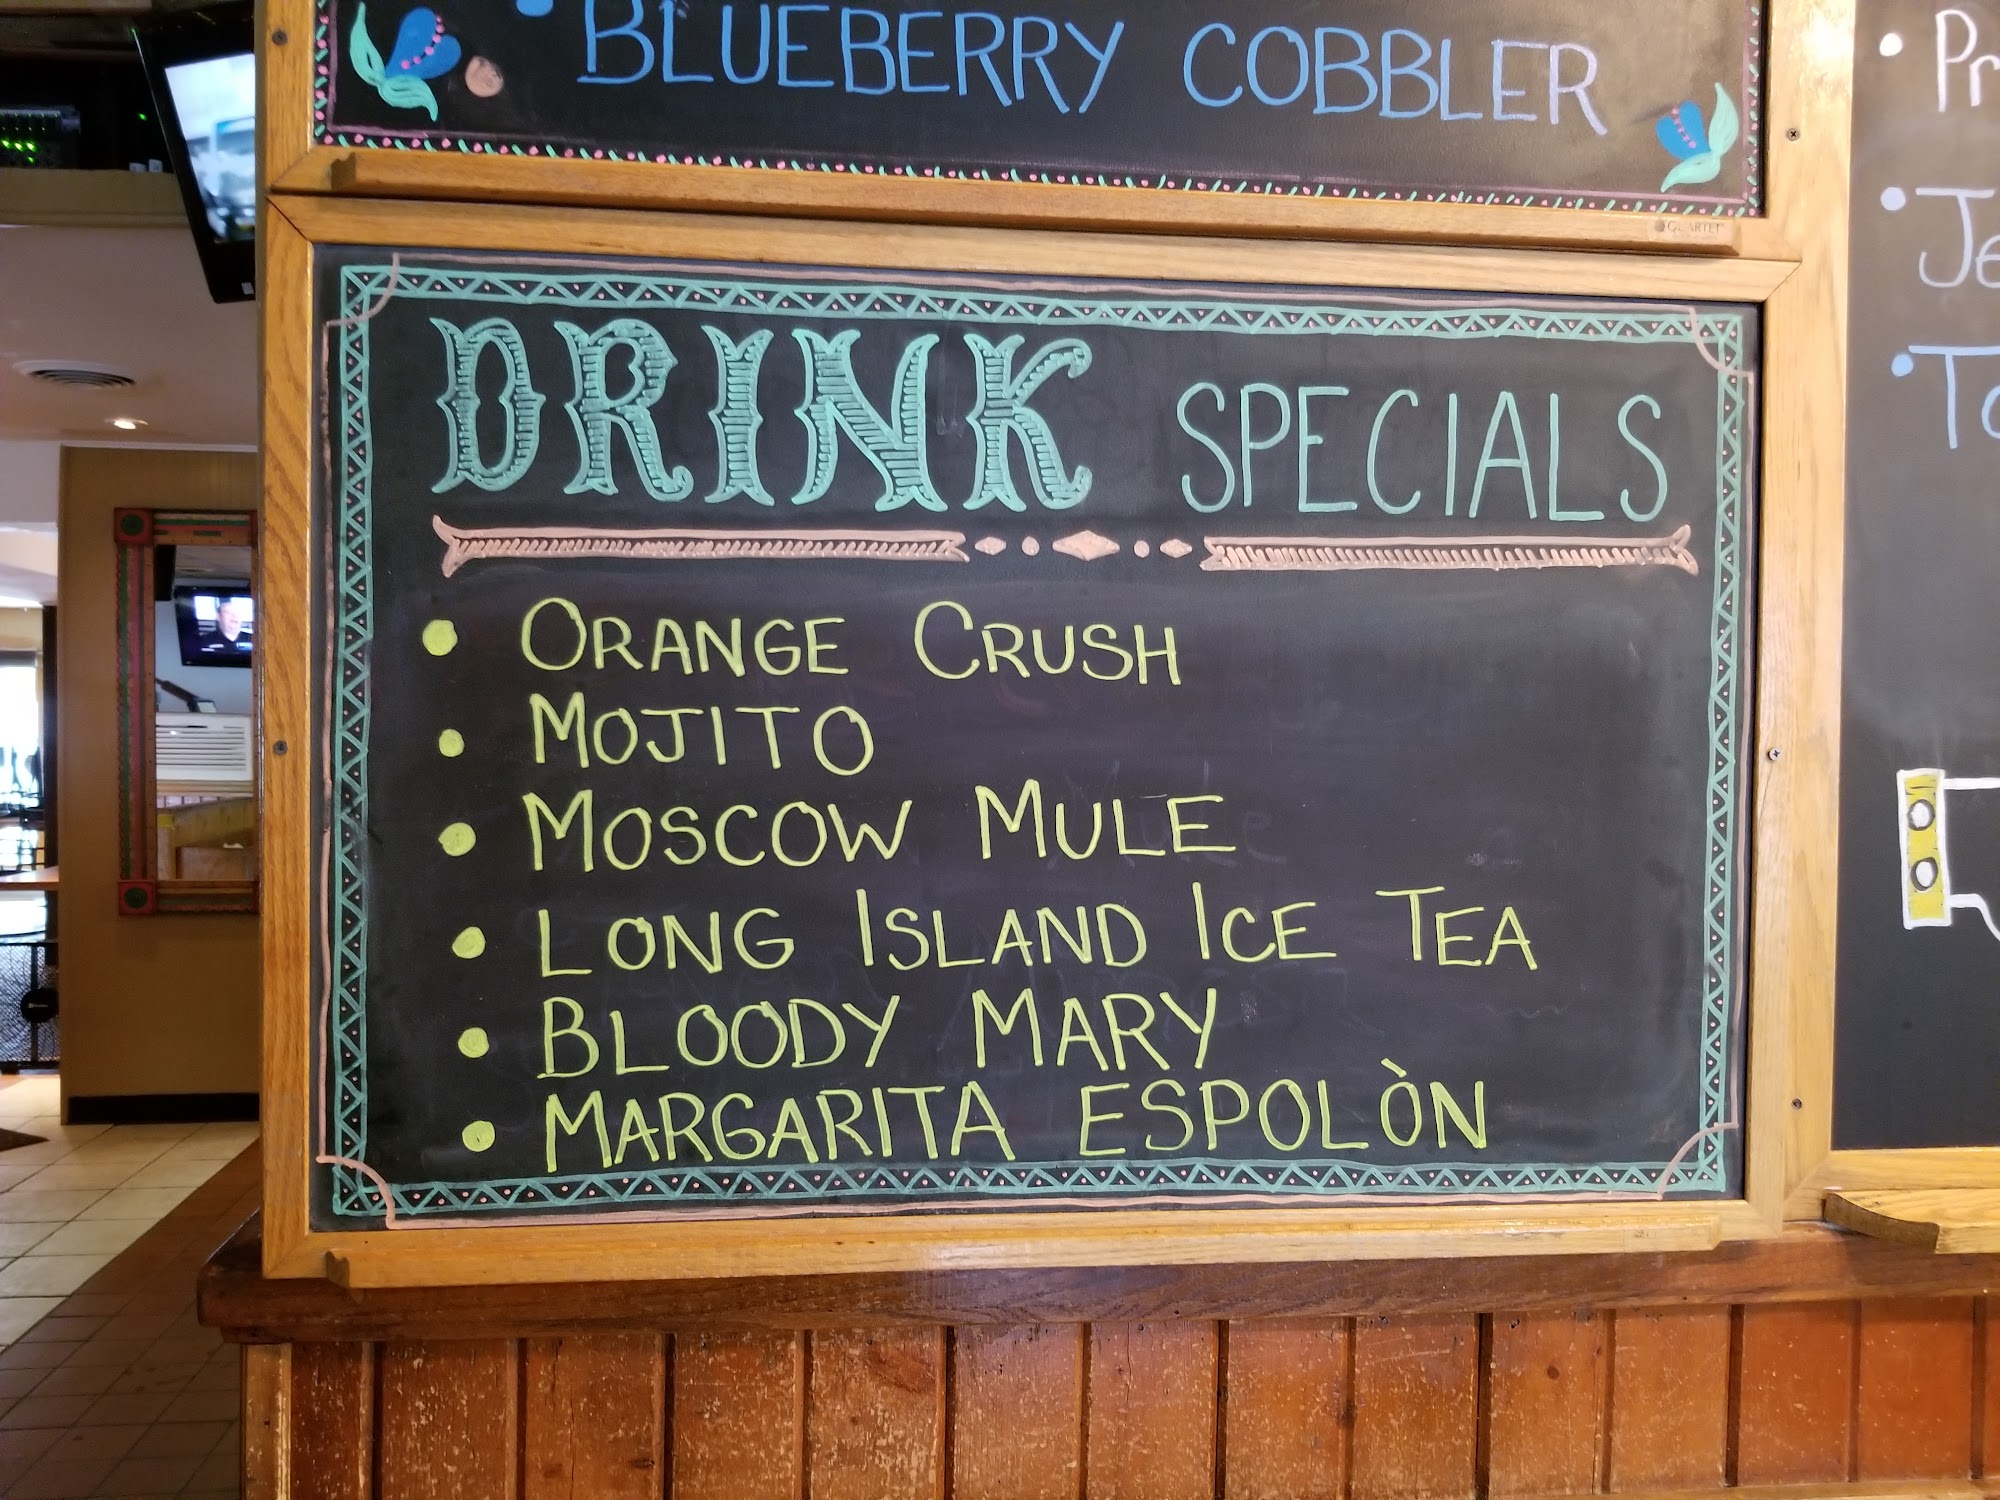 • BLUEBERRY COBBLER
QUARTET
DRINK SPECIALS
• ORANGE CRUSH
• MOJITO
• MOSCOW MULE
• LONG ISLAND ICE TEA
• BLOODY MARY
• MARGARITA ESPOLÒN